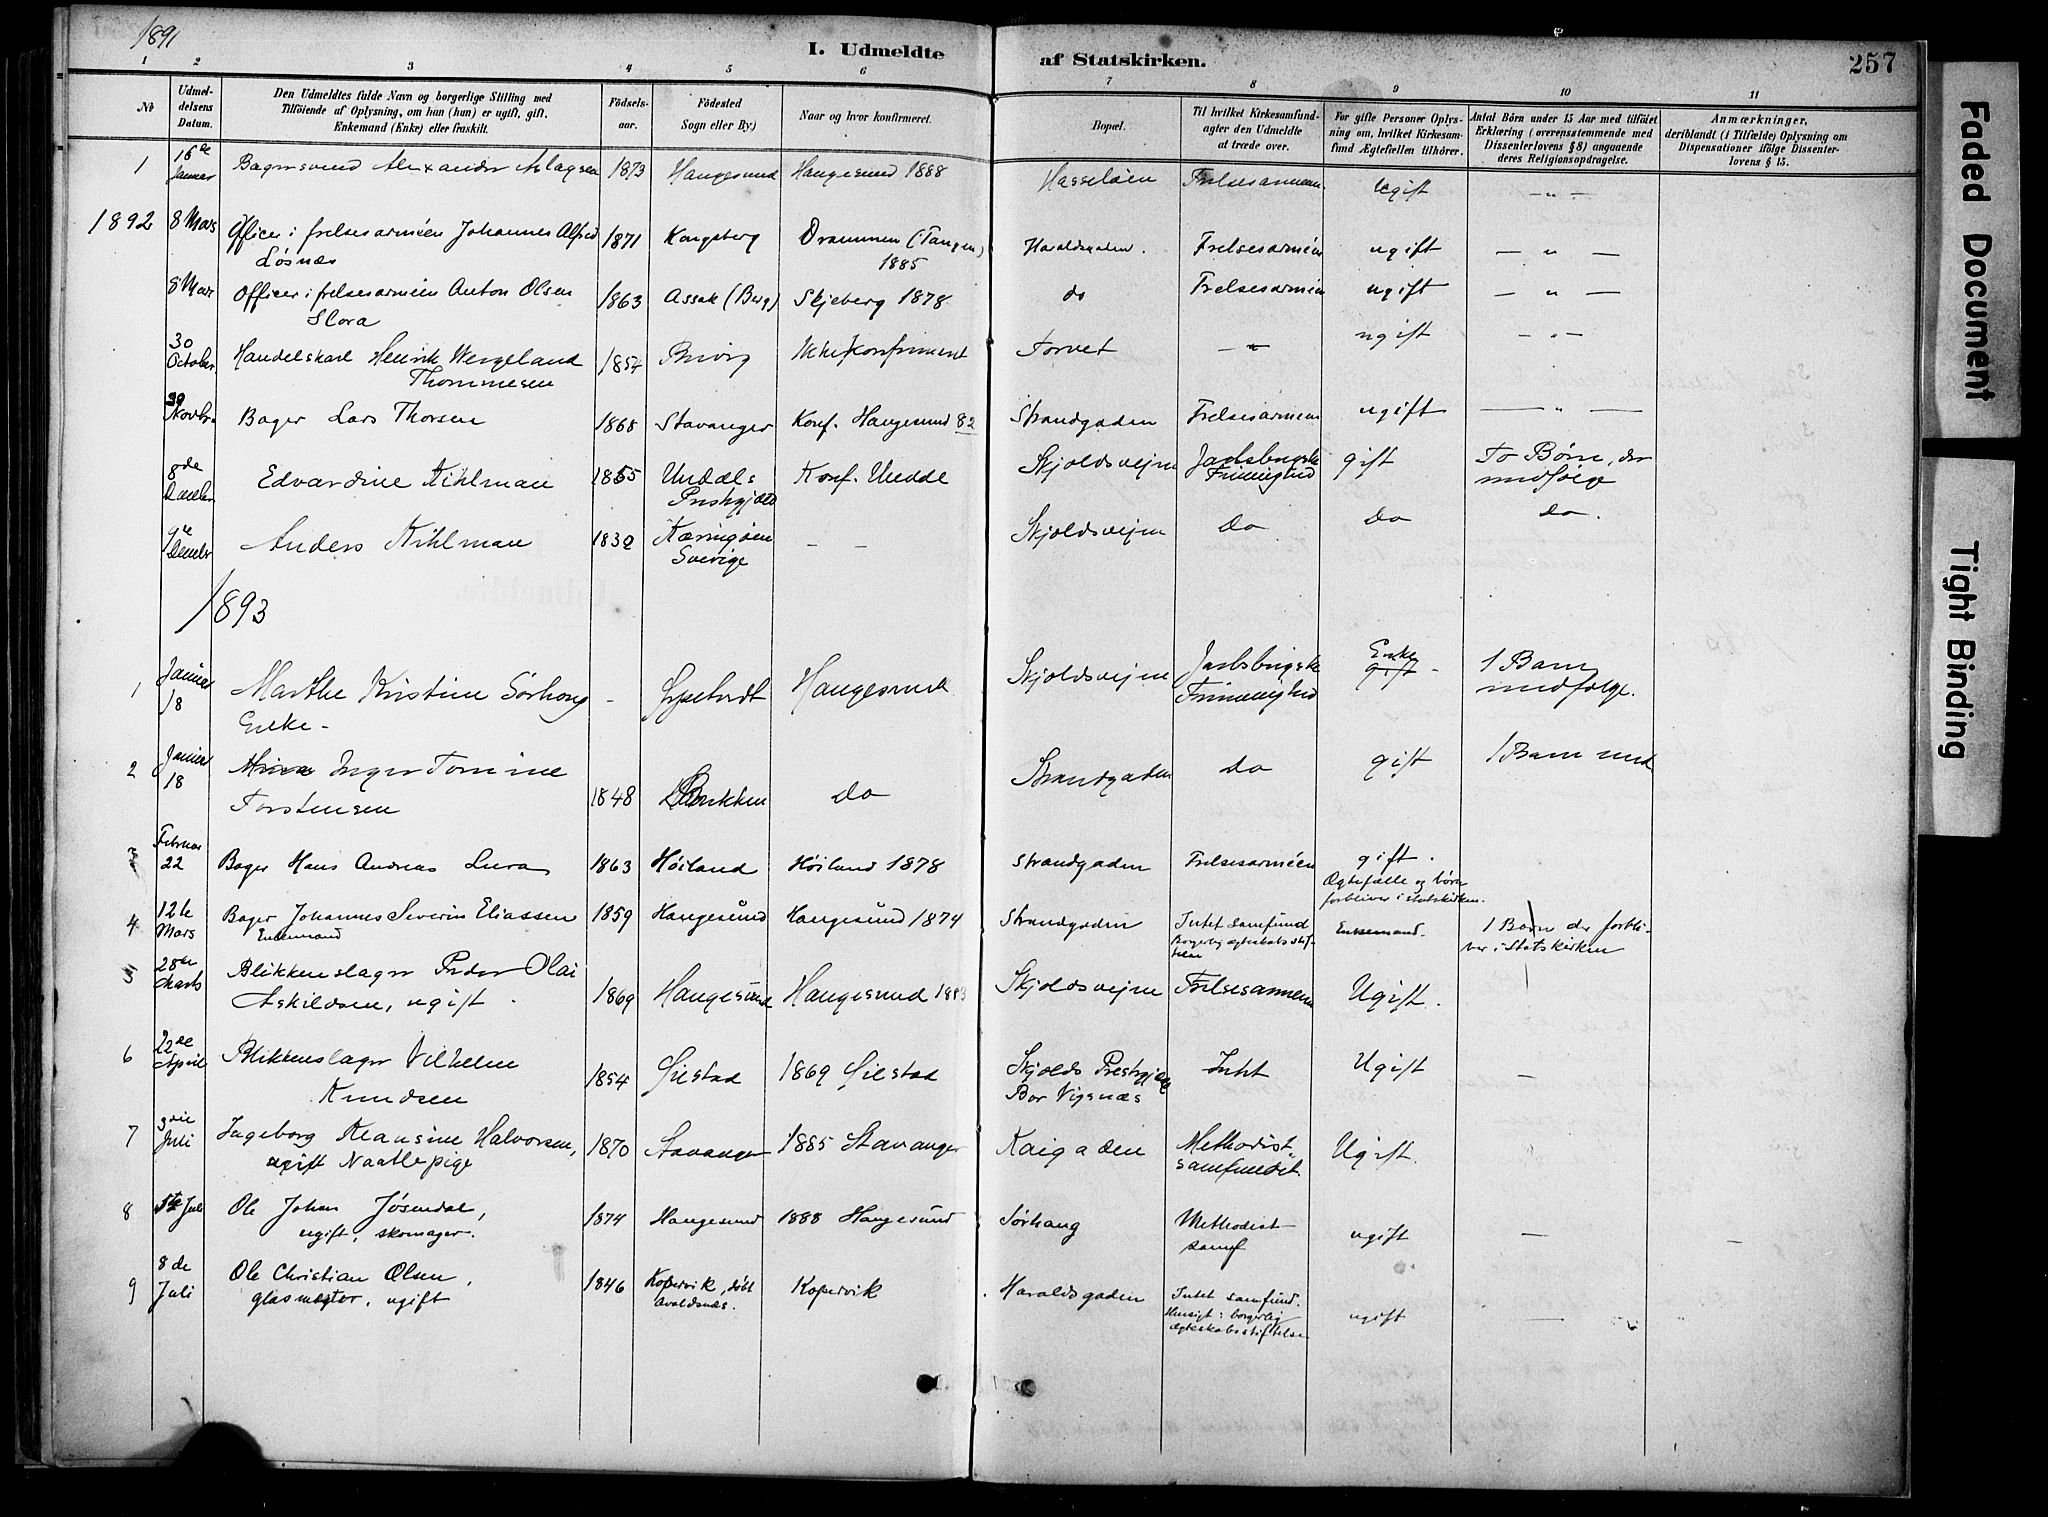 1891
I. Udmeldte af Statskirken.
257
1 2 3 4 5 6 7 8 9 10 11
№
Udmeldelsens Datum.
Den Udmeldtes fulde Navn og borgerlige Stilling med Tilføiende af Oplysning, om han (hun) er ugift, gift, Enkemand (Enke) eller fraskilt.
Fødselsaar.
Fødested Sogn eller By)
Naar og hvor konfirmeret.
Bopæl.
Til hvilket Kirkesamfund agter den Udmeldte at træde over.
For gifte Personer Oplysning om, hvilket Kirkesamfund Ægtefællen tilhører.
Antal Børn under 15 Aar med tilføiet Erklæring (overensstemmende med Dissenterlovens § 8) angaaende deres Religionsopdragelse.
Anmærkninger, deriblandt (i Tilfælde) Oplysning om Dispensationer ifølge Dissenterlovens § 15.
1 16de Januar Bagersvend Alexander Aslagsen 1873 Haugesund Haugesund 1888 Hasseløen Frelsesarmeen Ugift — " —
1892 8 Mars Officer i frelsesarméen Johannes Alfred Løsnæs 1871 Kongsberg Drammen (Tangen) 1885 Haraldsgaden. Frelsesarméen ugift — " —
8 Mars Officer i frelsesarméen Anton Olsen Slora 1863 Assak (Berg) Skjeberg 1878 do Frelsesarméen ugift — " —
30 October Handelskarl Henrik Wergeland Thommesen 1854 Brevig Ikke konfirmeret Torvet — " — ugift — " —
30 Novbr Bager Lars Thorsen 1868 Stavanger Konf. Haugesund 82 Strandgaden Frelsesarmeen ugift — " —
8de Decebr Edvardine Kihlman 1855 Undals Prestegjæld Konf. Undal Skjoldsvejen Jarlsbergske Frimenighed gift To Børn, der medfølge
9de Decebr Anders Kihlman 1832 Kæringøen Sverige — — Skjoldsvejen Do Do Do.
1893
1 Januar 18 Marthe Kristine Sørhoug Enke - - Haugesund Skjoldsvejen Jarlsbergske Frimenighed Enke gift - 1 Barn medfølge.
2 Januar 18 Inger Tomine Torstensen 1848 Bokken Do Strandgaden Do gift 1 Barn med
3 Februar 22 Bager Hans Andreas Lura 1863 Høiland Høiland 1878 Strandgaden Frelsesarméen gift. Ægtefælle og børn forbliver i statskirken.
4 12te Mars Bager Johannes Severin Eliassen Enkemand 1859 Haugesund Haugesund 1874 Strandgaden Intet samfund Borgerlig ægteskabsstiftelse Enkemand. 1 Barn der forbliver i Statskirken
5 28de Marts Blikkenslager Peder Olai Askildsen, ugift. 1869 Haugesund Haugesund 1883 Skjoldsvejen Frelsesarmeen Ugift.
6 22de April Blikkenslager Vilhelm Knudsen 1854 Gjestad 1869 Gjestad Skjolds Prestegjeld Bor Vigsnæs Intet Ugift —
7 3die Juli Ingeborg Klausine Halvorsen, ugift Naatlepige 1870 Stavanger 1885 Stavanger Kaigaden Methodistsamfundet. Ugift.
8 5te Juli Ole Johan Jøsendal, ugift, skomager. 1874 Haugesund 1888 Haugesund Sørhaug Methodist samf ugift — —
9 8de Juli Ole Christian Olsen, glasmester, ugift 1846 Kopervik, døbt Avaldsnæs. Kopervik Haraldsgaden Intet samfund. Hensigt: borgerlig ægteskabsstiftelse ugift —
Faded Document
Tight Binding